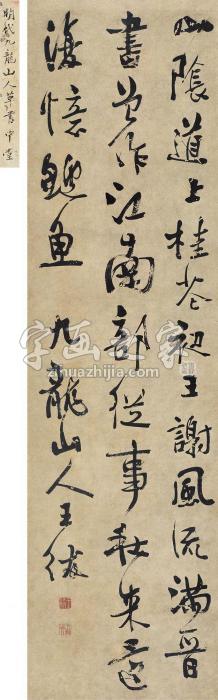 山陰道上桂花初王謝風流滿晉
書曾作江南部從事秋來還
復憶鱸魚 九龍山人王紱
明代九龍山人草書中堂
字画之家
zihuazhijia.com